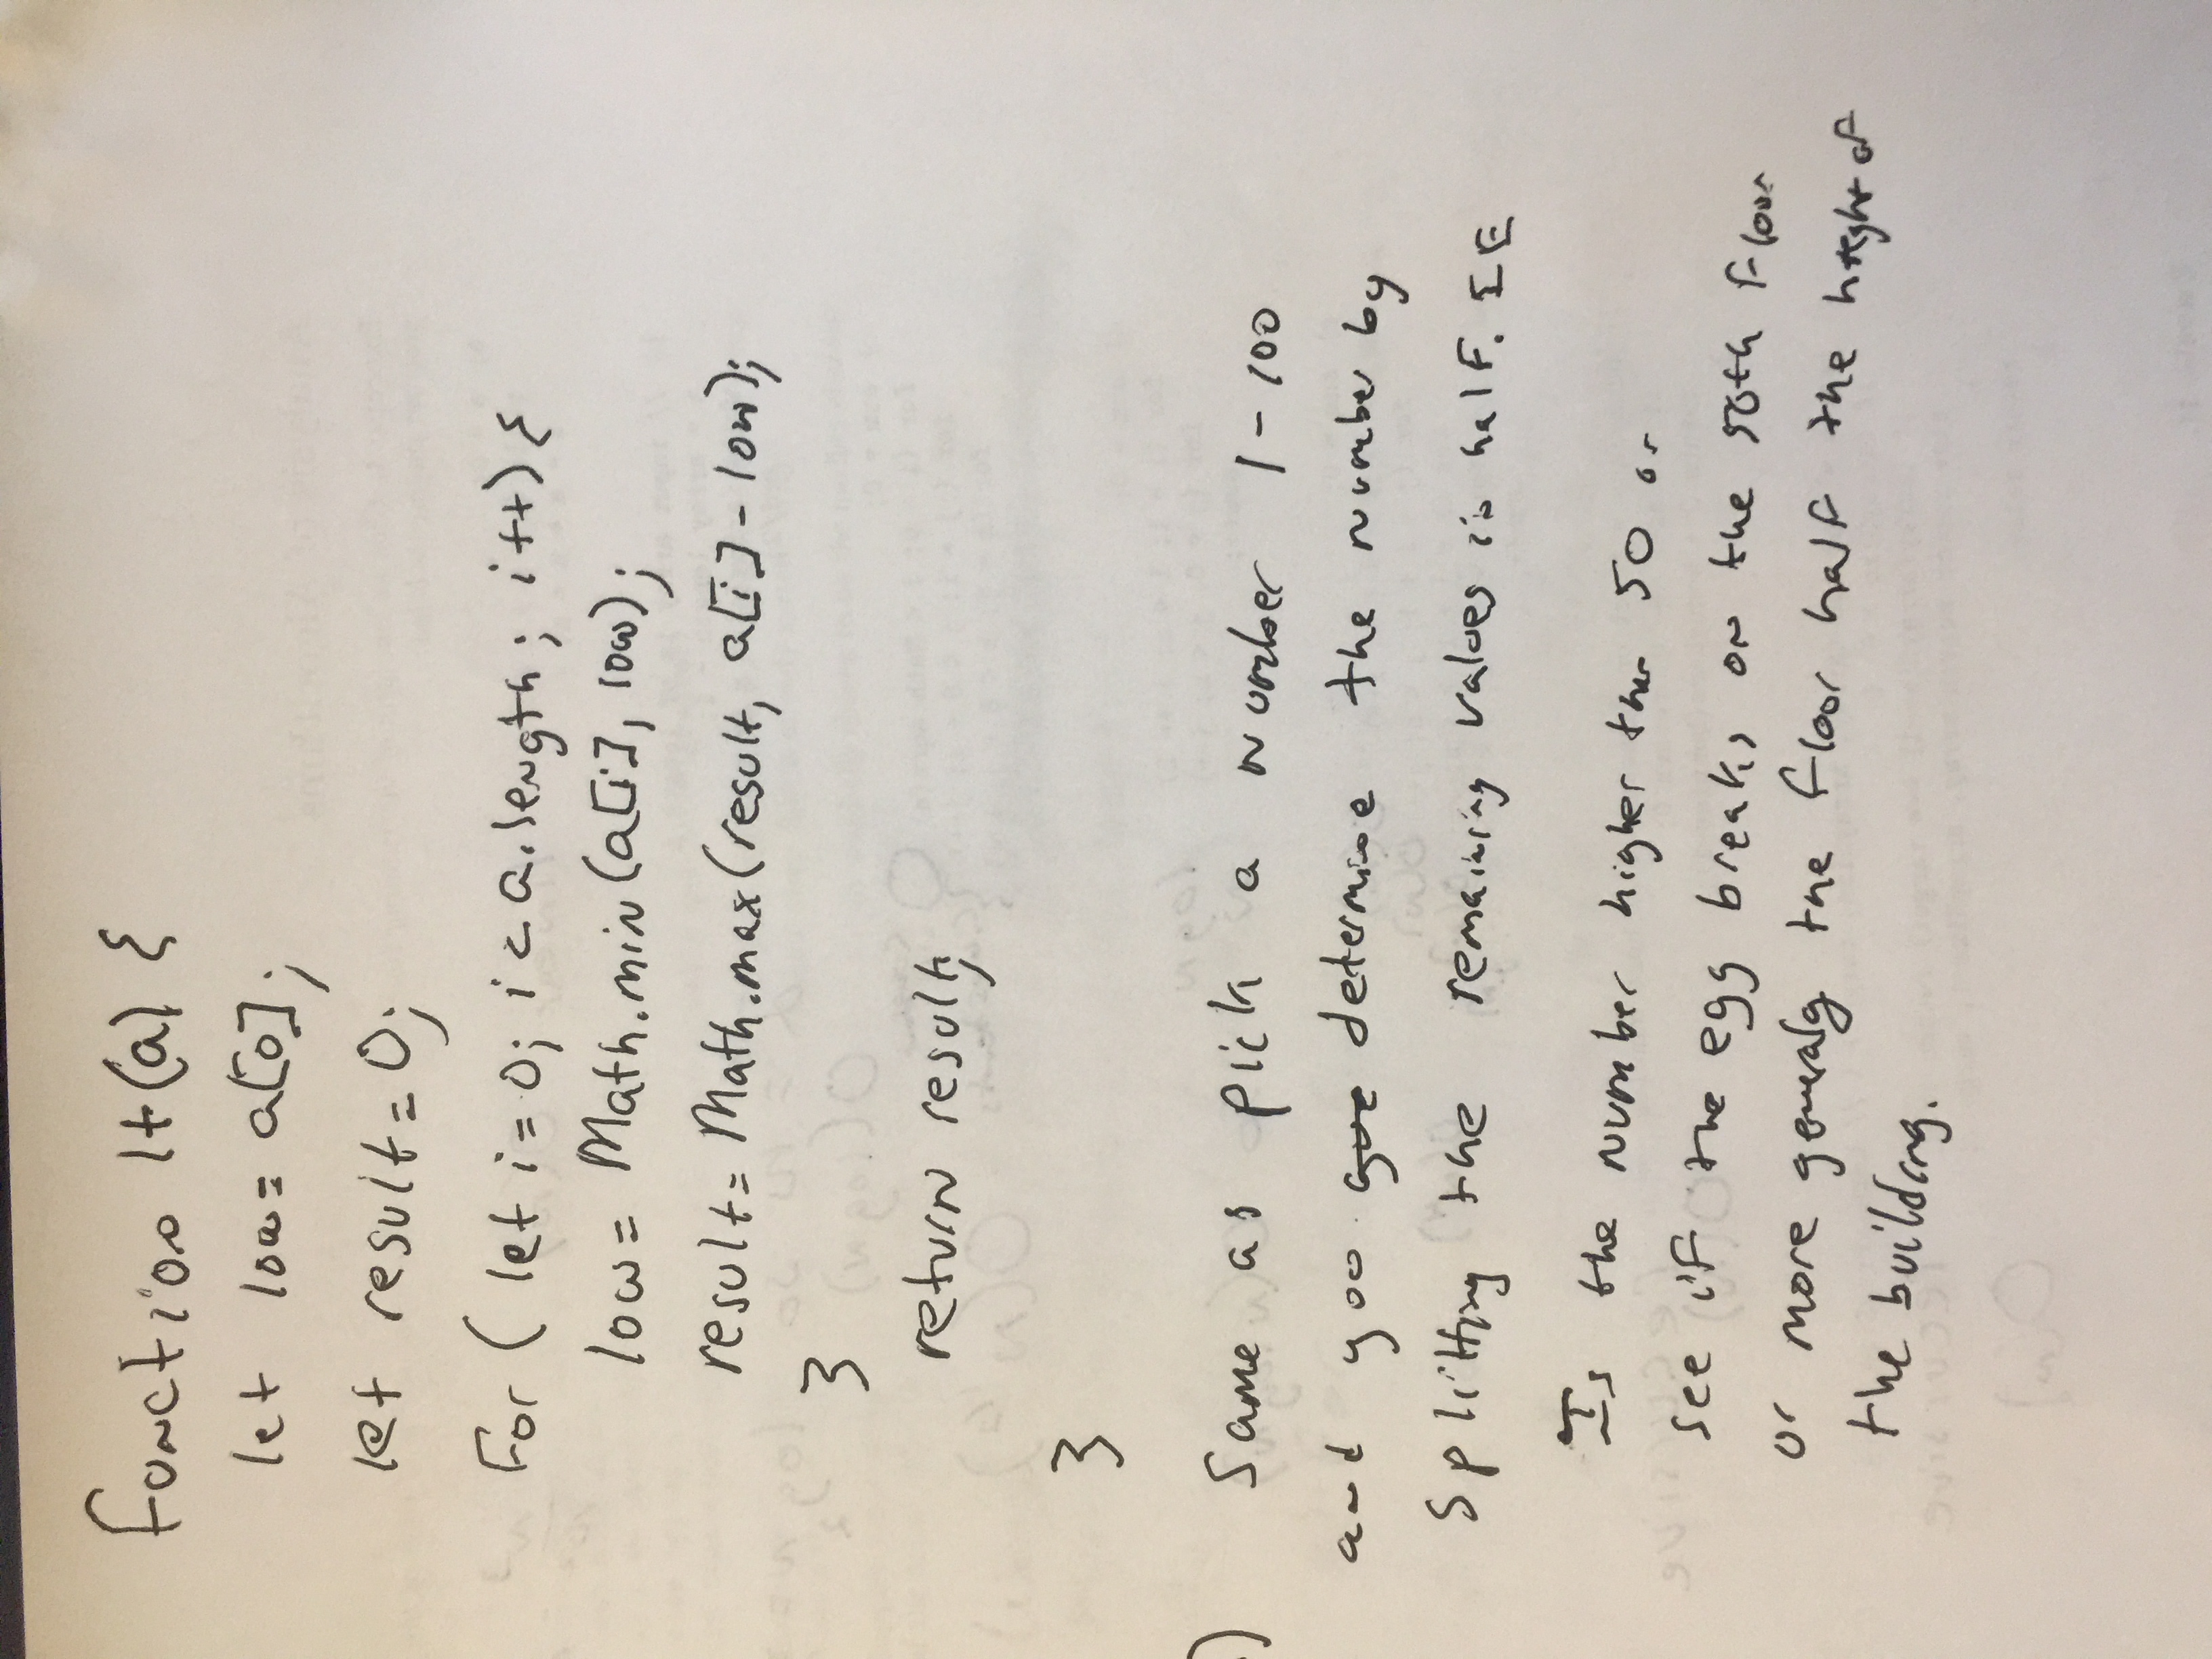 function lt(a) {
let low = a[0];
let result = 0;
For ( let i = 0; i < a.length; i++) {
low = Math.min(a[i], low);
result = Math.max(result, a[i] - low);
}
return result;
}
) Same as pick a number 1-100
and you determine the number by
splitting the remaining values in half. IE
Is the number higher than 50 or
see if the egg breaks on the 50th floor
or more generaly the floor half the height of
the building.